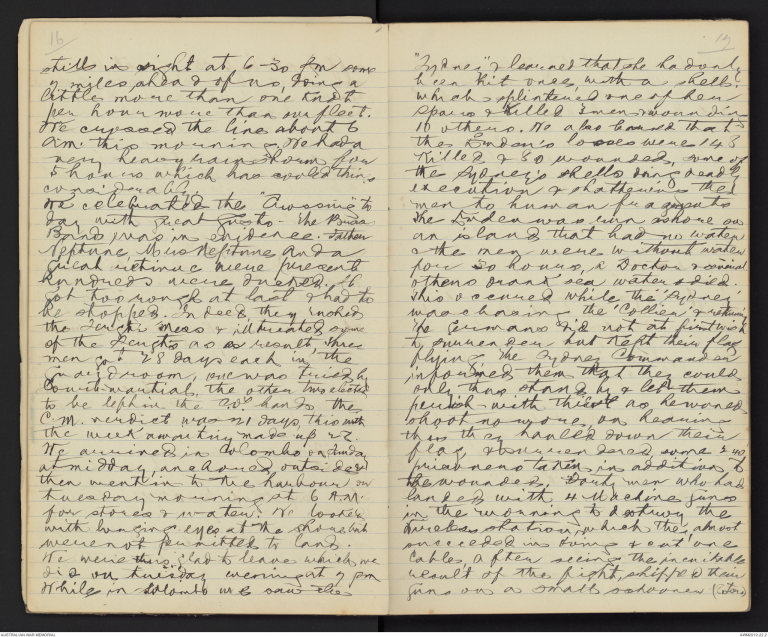 16
still in sight at 6-30 pm some
9 miles ahead of us, doing a
little more than one knot
per hour more than our fleet.
We crossed the line about 6
A.M. this morning, We had a
very heavy rain storm for
hours which has cooled things
considerably.
We celebrated the "Crossing" to
day with great Gusto - The Brass
Band was in evidence - Father
Neptune Miss Neptune and a
great retinue were present
hundreds were ducked. It
got too rough at last & had to
be stopped. Indeed, they rushed
the Sergts mess & illtreated some
of the Sergts as a result, three
men got 28 days each in the
Guardroom, one was tried by
Court-martial, the other two elected
to be left in the C.O's hands the
C.M. verdict was 21 days, this with
the week awaiting made up 28.
We arrived in Colombo on
at midday, anchored outside &
then went in to the harbour on
tuesday morning at 6 A.M.
for stores & water. We looked
with longing eyes at the shore but
were not permitted to land.
We were thus glad to leave which we
did on tuesday evening at 9 pm
While in Colombo we saw the
17
"Sydney" & learned that she had only
been hit once with a shell.
which splintered one of her
spars & killed 3 men & wounding
10 others. We also learned that
the Emden's losses were 148
Killed & 30 wounded, some of
the Sydney's shells doing deadly
execution & shattering the
men to human fragments
The Emden was run ashore on
an island that had no water
& the men were without water
for 30 hours, a Doctor & several
others drank sea water & died.
This occurred while the "Sydney"
was chasing the 'Collier' &
The Germans did not at first wish
to surrender but kept their flag
flying. The Sydney Commander
informed them that they could
only thus stand by & let them
perish with thirst as he would
shoot no more, on hearing
this they hauled down their
flag & surrendered some 240
prisoners taken, in addition to
the wounded, Forty men who had
landed with 4 Machine guns
in the morning to destroy the
wireless station, which they almost
succeeded in doing & cut one
Cable, after seeing the inevitable
result of the fight, shipped their
guns on a small schooner
AUSTRALIAN WAR MEMORIAL